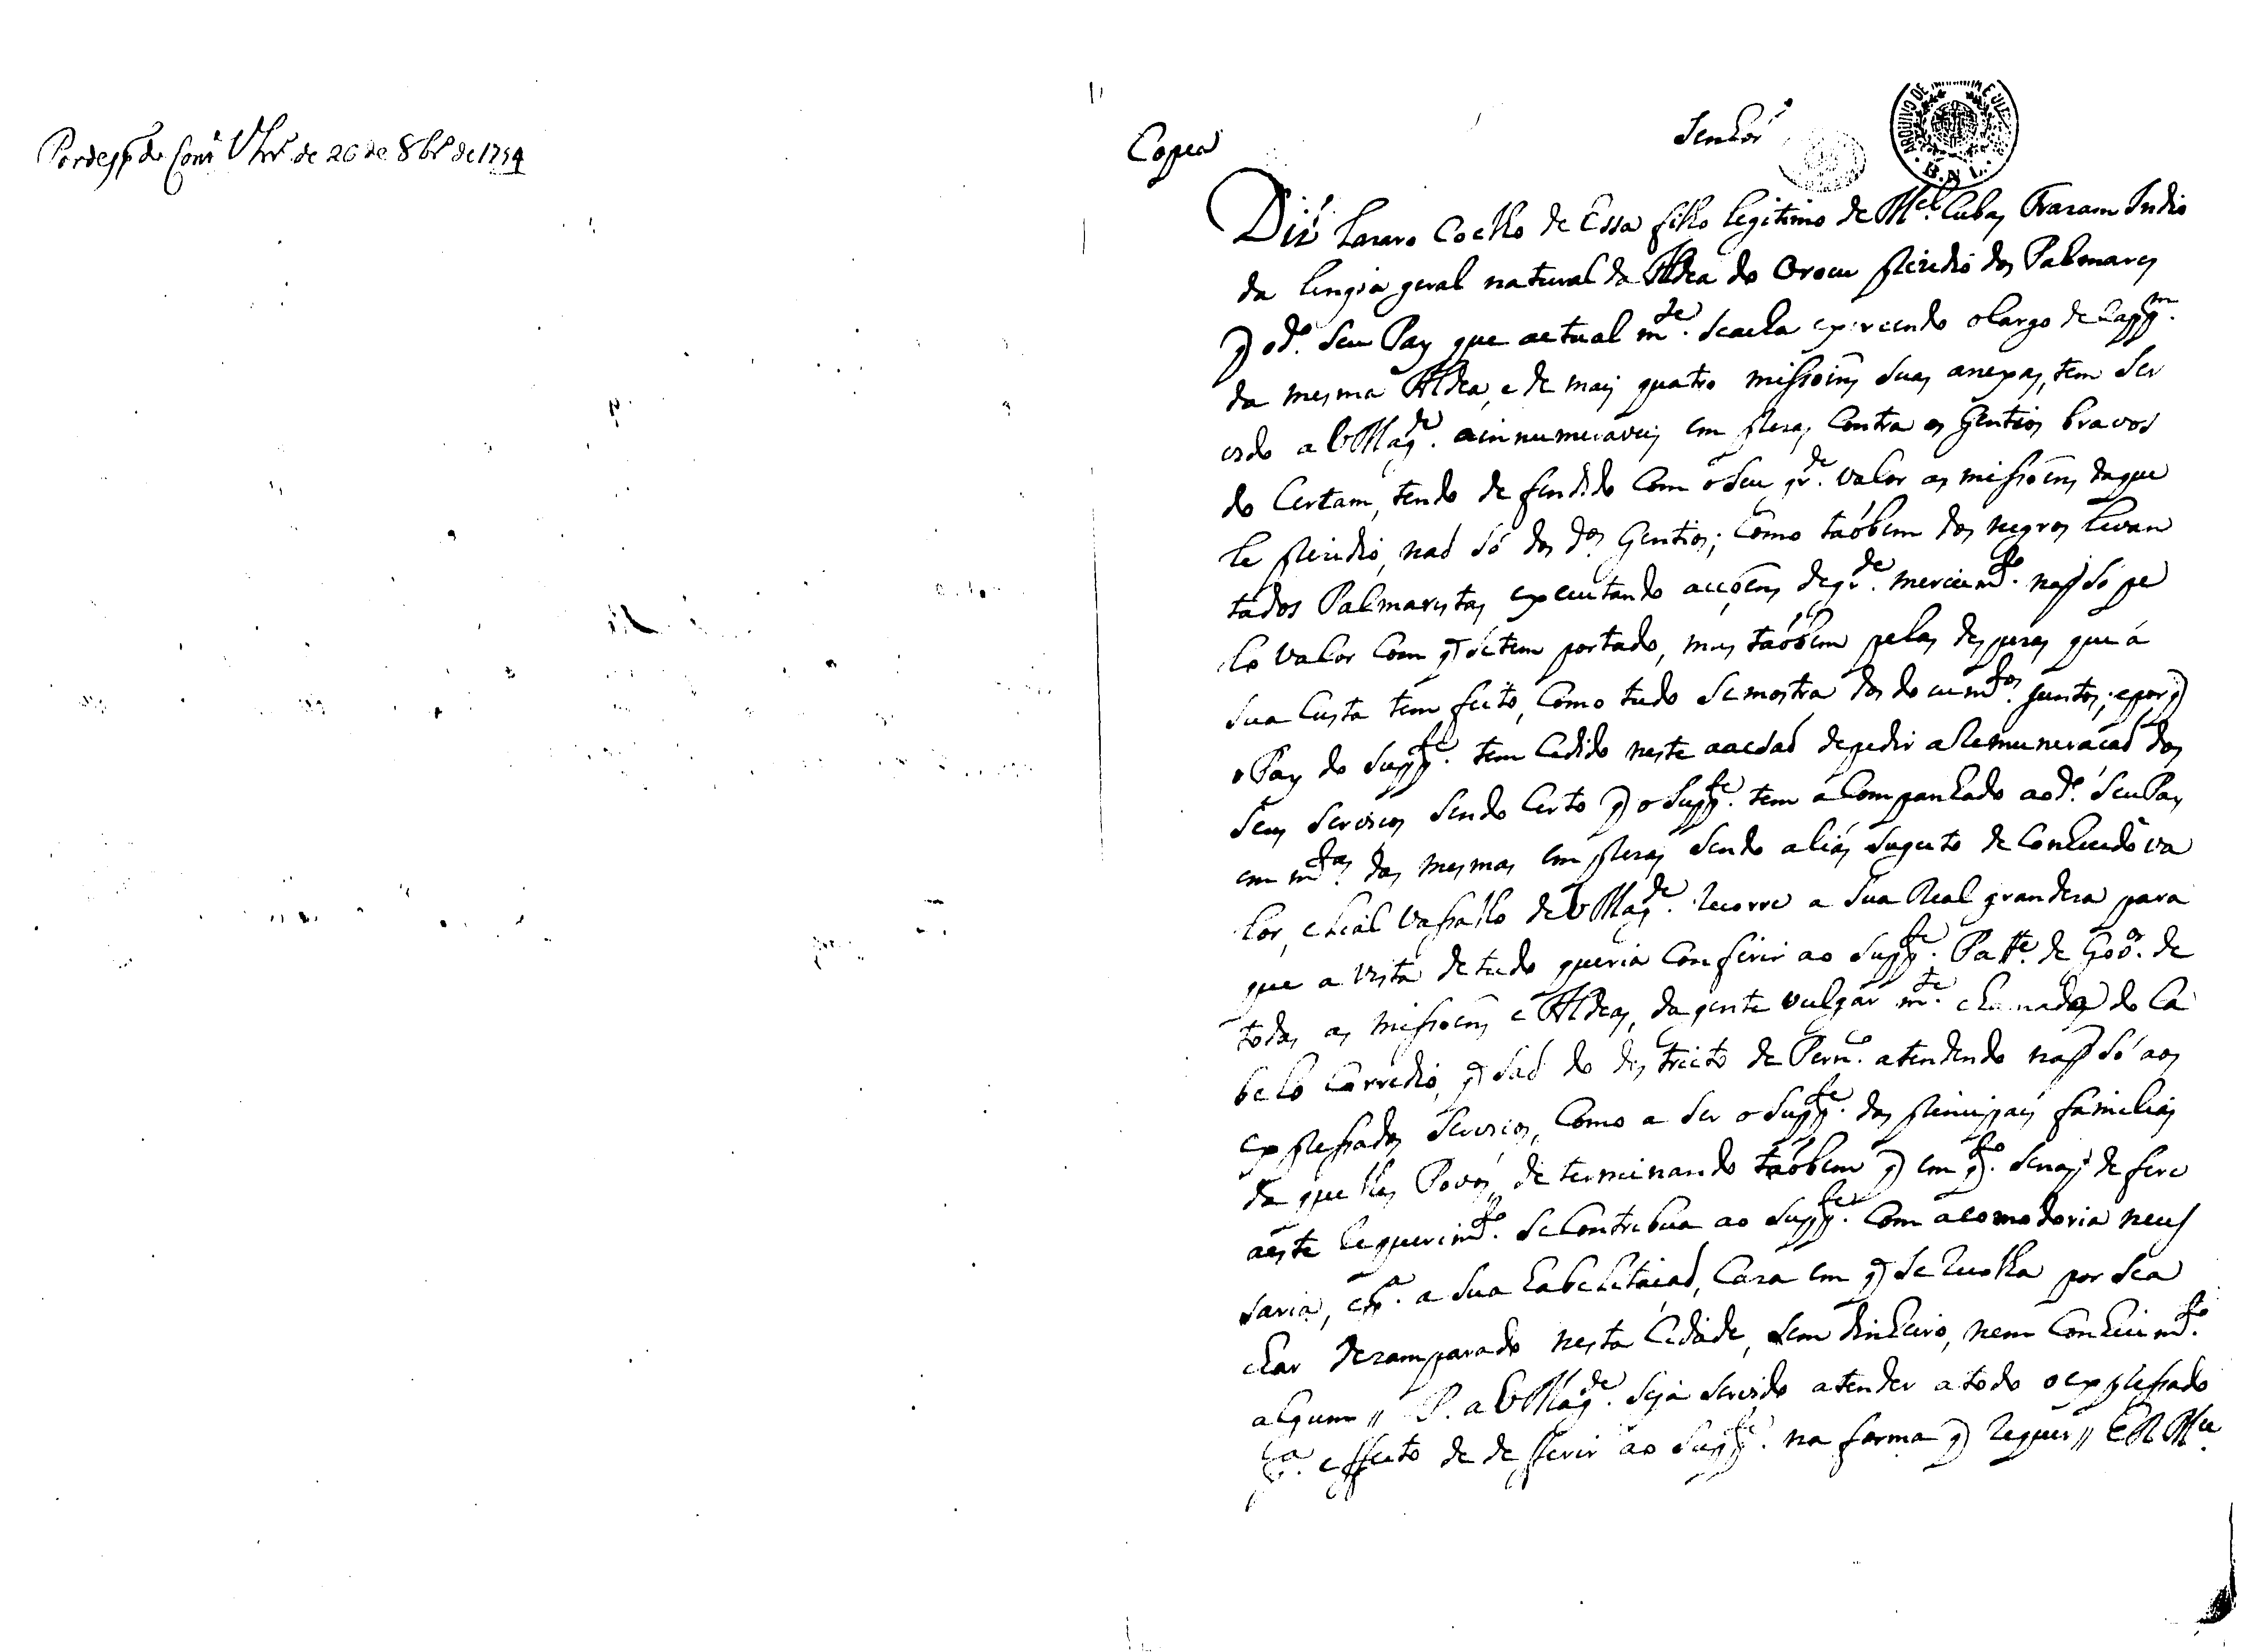 Por desp.º do Cons.º Ultr.º de 26 de 8br.º de 1754
Copea
Senhor
ARQUIVO DE
B.N.L.
Diz Lazaro Coelho de Essa filho legitimo de M.el Cubas Frazam Indio
da lingoa geral natural da Aldea do Orocu prizidio dos Palmares
q̃ o d.º seu Pay que actualm.te se acha exercendo o Cargo de Capp.m
da mesma Aldea, e de mais quatro missoins suas anexas, tem ser
vido a V Mag.de a innumeraveis em prezas Contra os Gentios bravos
do Certam, tendo de fendido Com o seu gr.de valor as missoens daque
le prizidio, naó só dos d.os Gentios; Como taóbem dos negros levan
tados Palmaristas, executando acçoens de gr.de mercim.to naõ só pe
lo valor Com q̃ se tem portado, mas taóbem pelas despezas que á
sua Custa tem feito, Como tudo se mostra dos docum.tos juntos; e por q̃
o Pay do Supp.te tem Cedido neste a acsaó de pedir a Remuneracaó dos
seus servicos sendo Certo q̃ o Supp.te tem acompanhado ao d.º seu Pay
em m.tas das mesmas em prezas sendo aliás sugeito de Conhecido va
lor, e Leal Vassallo de V Mag.de recorre a Sua Real grandeza para
que a vista de tudo queira Conferir ao Supp.te Patt.e de Gov.or de
todas as missoens e Aldeas, da gente vulgarm.te chamada do Ca
belo Corredio, q̃ saó do destricto de Pern.co atendendo naõ só aos
expressados servicos, Como a ser o Supp.te das principais familias
da quelles Povos, determinando taóbem q̃ em q.to se naõ defere
a este requerim.to se Contribua ao Supp.te Com a comodoria neces
saria, e p.a a sua habelitacaó, Caza em q̃ se recolha por se a
char dezamparado nesta Cidade, sem dinheiro, nem Conhecim.to
algum // P. a V Mag.de seja servido atender a todo o expressado
p.a effeito de defferir ao Supp.te na forma q̃ requer // E R M.ce